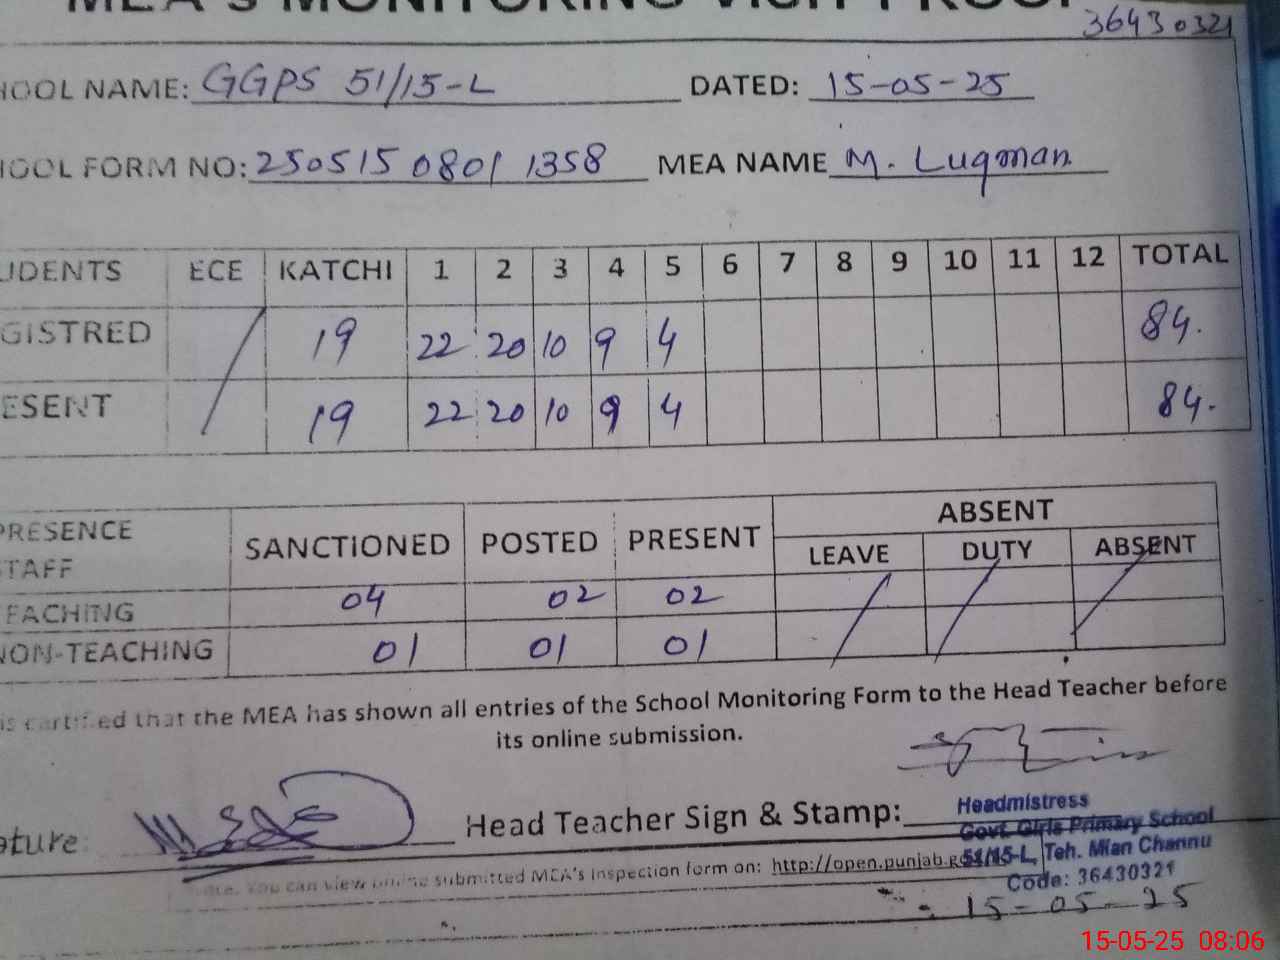 MEA'S MONITORING VISIT PROOF
36430321
HOOL NAME: GGPS 51/15-L DATED: 15-05-25
HOOL FORM NO: 250515 0801 1358 MEA NAME M. Luqman
UDENTS ECE KATCHI 1 2 3 4 5 6 7 8 9 10 11 12 TOTAL
GISTRED 19 22 20 10 9 4 84.
ESENT 19 22 20 10 9 4 84.
PRESENCE SANCTIONED POSTED PRESENT ABSENT
TAFF LEAVE DUTY ABSENT
EACHING 04 02 02
NON-TEACHING 01 01 01
is certified that the MEA has shown all entries of the School Monitoring Form to the Head Teacher before
its online submission.
ature: Head Teacher Sign & Stamp:
Headmistress
Govt. Girls Primary School
51/15-L, Teh. Mian Channu
Code: 36430321
Note. You can view online submitted MEA's inspection form on: http://open.punjab.g
15-05-25
15-05-25 08:06